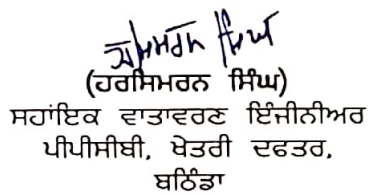 ਹਰਸਿਮਰਨ ਸਿੰਘ
(ਹਰਸਿਮਰਨ ਸਿੰਘ)
ਸਹਾਂਇਕ ਵਾਤਾਵਰਣ ਇੰਜੀਨੀਅਰ
ਪੀਪੀਸੀਬੀ, ਖੇਤਰੀ ਦਫਤਰ,
ਬਠਿੰਡਾ